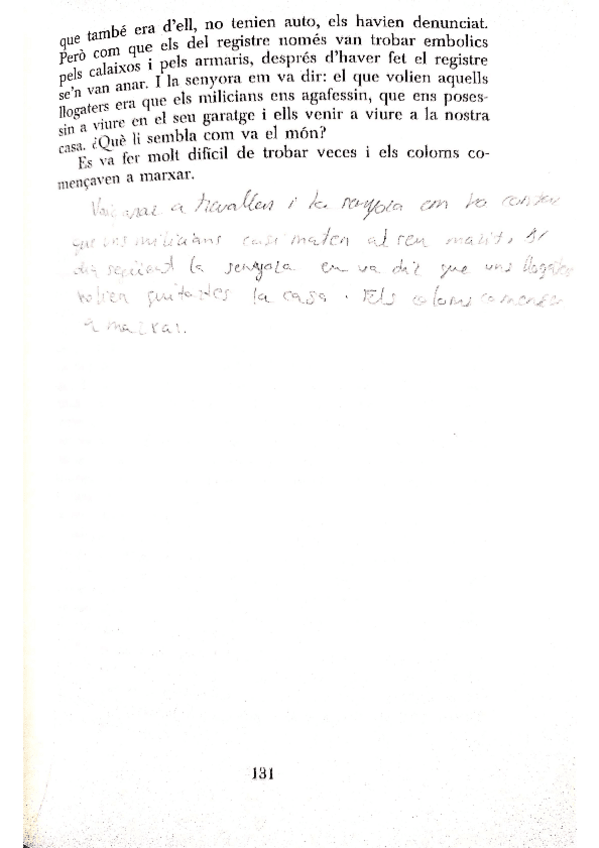 que també era d'ell, no tenien auto, els havien denunciat.
Però com que els del registre només van trobar embolics
pels calaixos i pels armaris, després d'haver fet el registre
se'n van anar. I la senyora em va dir: el que volien aquells
llogaters era que els milicians ens agafessin, que ens poses-
sin a viure en el seu garatge i ells venir a viure a la nostra
casa. ¿Què li sembla com va el món?
Es va fer molt difícil de trobar veces i els coloms co-
mençaven a marxar.
Vaig anar a treballar i la senyora em ho
que uns milicians casi maten al seu marit. El
dia següent la senyora em va dir que uns llogaters
volien la casa. Els coloms comencen
a marxar.
131